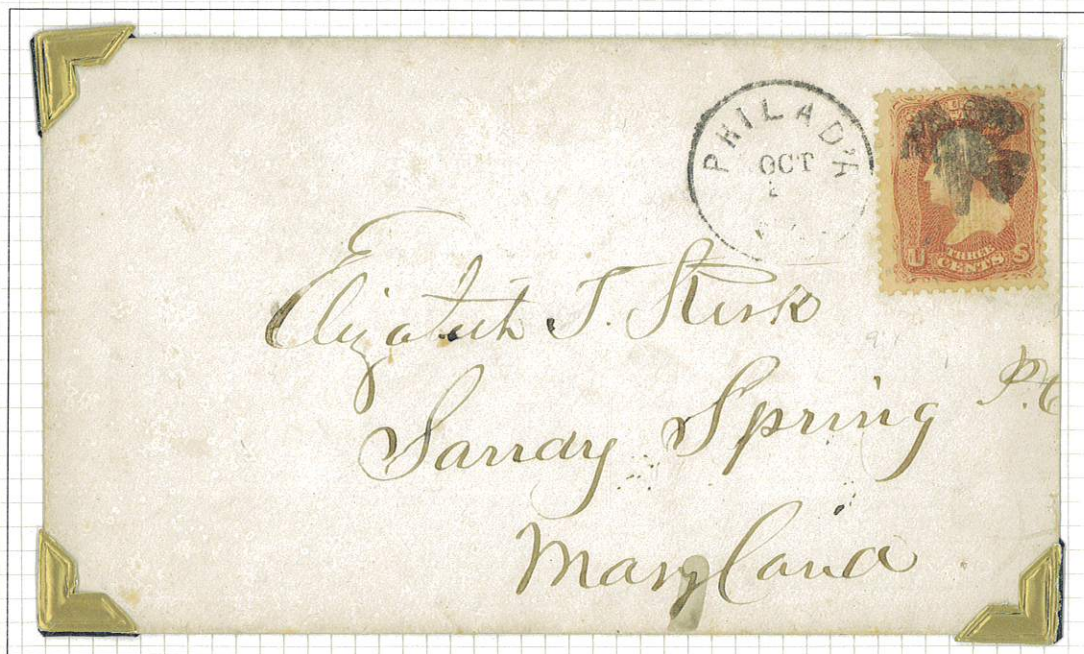 PHILAD'A
OCT
U THREE CENTS S
Elizabeth T. Kirk
Sandy Spring P.O
Maryland